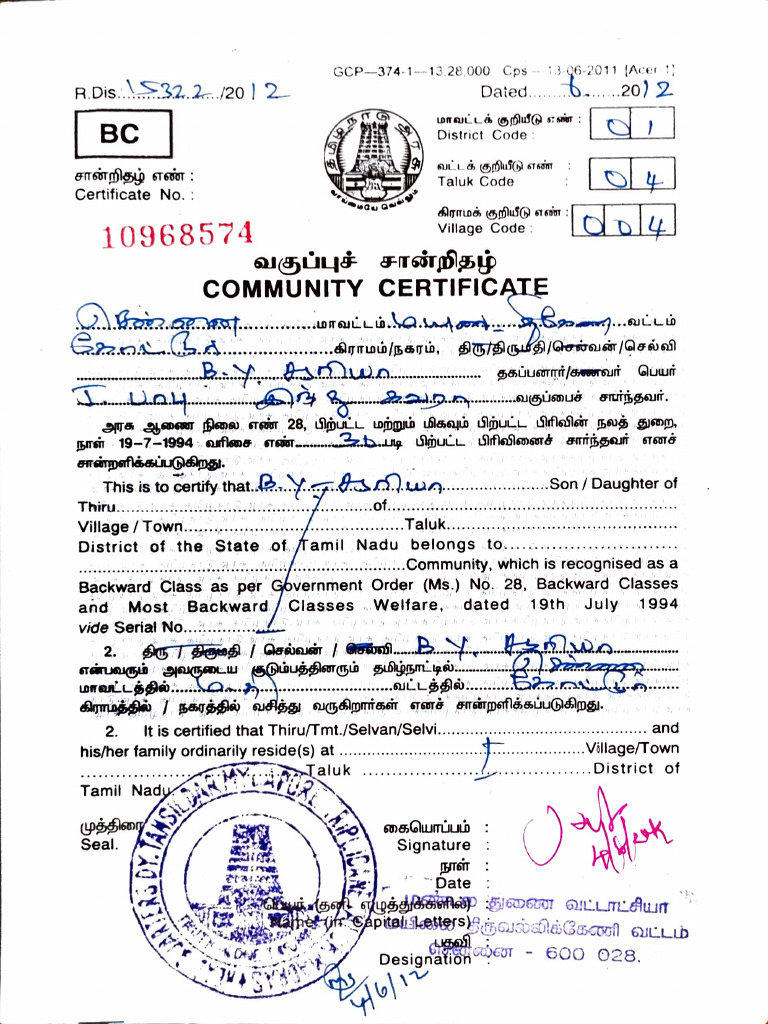 GCP—374-1—13.28,000 Cps — 13-06-2011 {Acer-1}
R.Dis. 15322 /2012 Dated 6 2012
BC
தமிழ்நாடு அரசு
வாய்மையே வெல்லும்
மாவட்டக் குறியீடு எண் :
District Code : 01
வட்டக் குறியீடு எண் :
Taluk Code : 04
கிராமக் குறியீடு எண் :
Village Code : 004
சான்றிதழ் எண் :
Certificate No. :
10968574
வகுப்புச் சான்றிதழ்
COMMUNITY CERTIFICATE
சென்னை மாவட்டம் வட்டம்
கிராமம்/நகரம், திரு/திருமதி/செல்வன்/செல்வி
B.Y. தகப்பனார்/கணவர் பெயர்
J. பாபு இந்து கவரா வகுப்பைச் சார்ந்தவர்.
அரசு ஆணை நிலை எண் 28, பிற்பட்ட மற்றும் மிகவும் பிற்பட்ட பிரிவின் நலத் துறை,
நாள் 19-7-1994 வரிசை எண் 36 படி பிற்பட்ட பிரிவினைச் சார்ந்தவர் எனச்
சான்றளிக்கப்படுகிறது.
This is to certify that B.Y. Son / Daughter of
Thiru of
Village / Town Taluk
District of the State of Tamil Nadu belongs to
Community, which is recognised as a
Backward Class as per Government Order (Ms.) No. 28, Backward Classes
and Most Backward Classes Welfare, dated 19th July 1994
vide Serial No.
2. திரு / திருமதி / செல்வன் / செல்வி B.Y.
என்பவரும் அவருடைய குடும்பத்தினரும் தமிழ்நாட்டில் சென்னை
மாவட்டத்தில் வட்டத்தில்
கிராமத்தில் / நகரத்தில் வசித்து வருகிறார்கள் எனச் சான்றளிக்கப்படுகிறது.
2. It is certified that Thiru/Tmt./Selvan/Selvi and
his/her family ordinarily reside(s) at Village/Town
Taluk District of
Tamil Nadu.
முத்திரை
Seal.
கையொப்பம் :
Signature :
நாள் :
Date :
பெயர் (தனி எழுத்துக்களில்) :
Name (in Capital Letters) :
பதவி
Designation :
துணை வட்டாட்சியர்
திருவல்லிக்கேணி வட்டம்
சென்னை - 600 028.
4/6/12